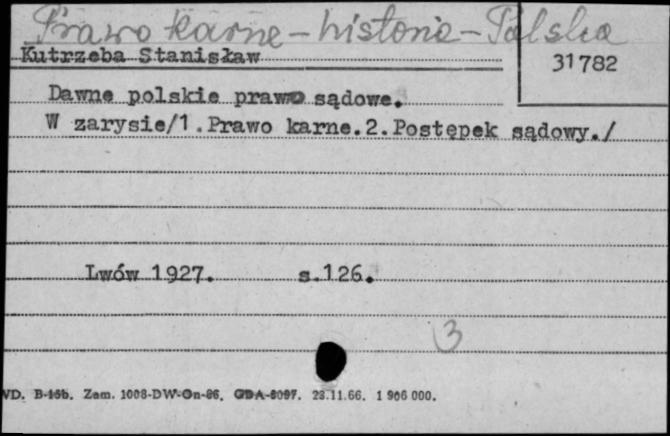 Prawo karne – historia – Polska
Kutrzeba Stanisław
31782
Dawne polskie prawo sądowe.
W zarysie/1.Prawo karne.2.Postępek sądowy./
Lwów 1927. s.126.
3
WD. B-15b. Zam. 1008-DW-On-86, GDA-8097. 23.11.66. 1 906 000.